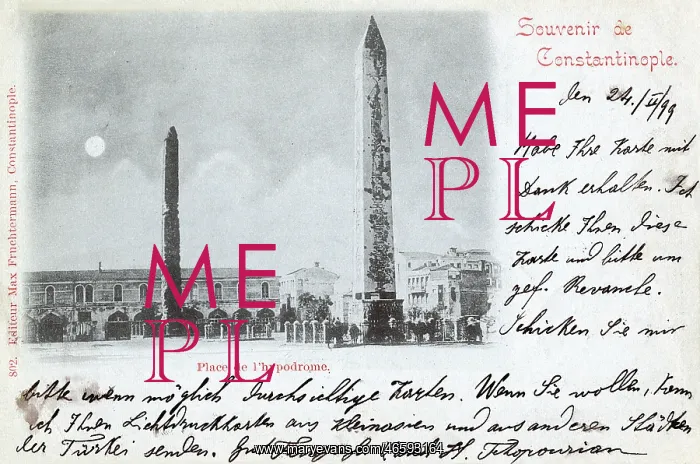 Souvenir de
Constantinople.
den 24./II/99
Habe Ihre Karte mit
Dank erhalten. Ich
schicke Ihnen diese
Karte und bitte um
gef. Revanche.
Schicken Sie mir
802. Editeur Max Fruchtermann, Constantinople.
Place de l'hypodrome.
bitte wenn möglich durchsichtige Karten. Wenn Sie wollen, kann
ich Ihnen Lichtdruckkarten aus Kleinasien und aus anderen Städten
der Türkei senden.
ME
PL
ME
PL
www.maryevans.com/46593164